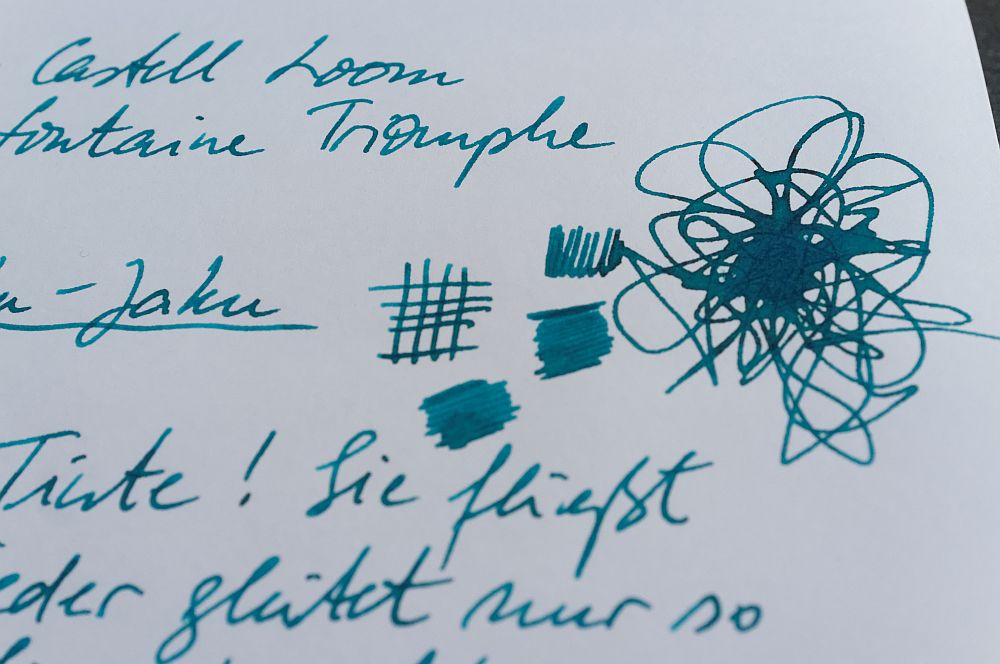 Castell Loom
fontaine Triomphe
ku-Jaku
Tinte! Sie fließt
eder gleitet nur so